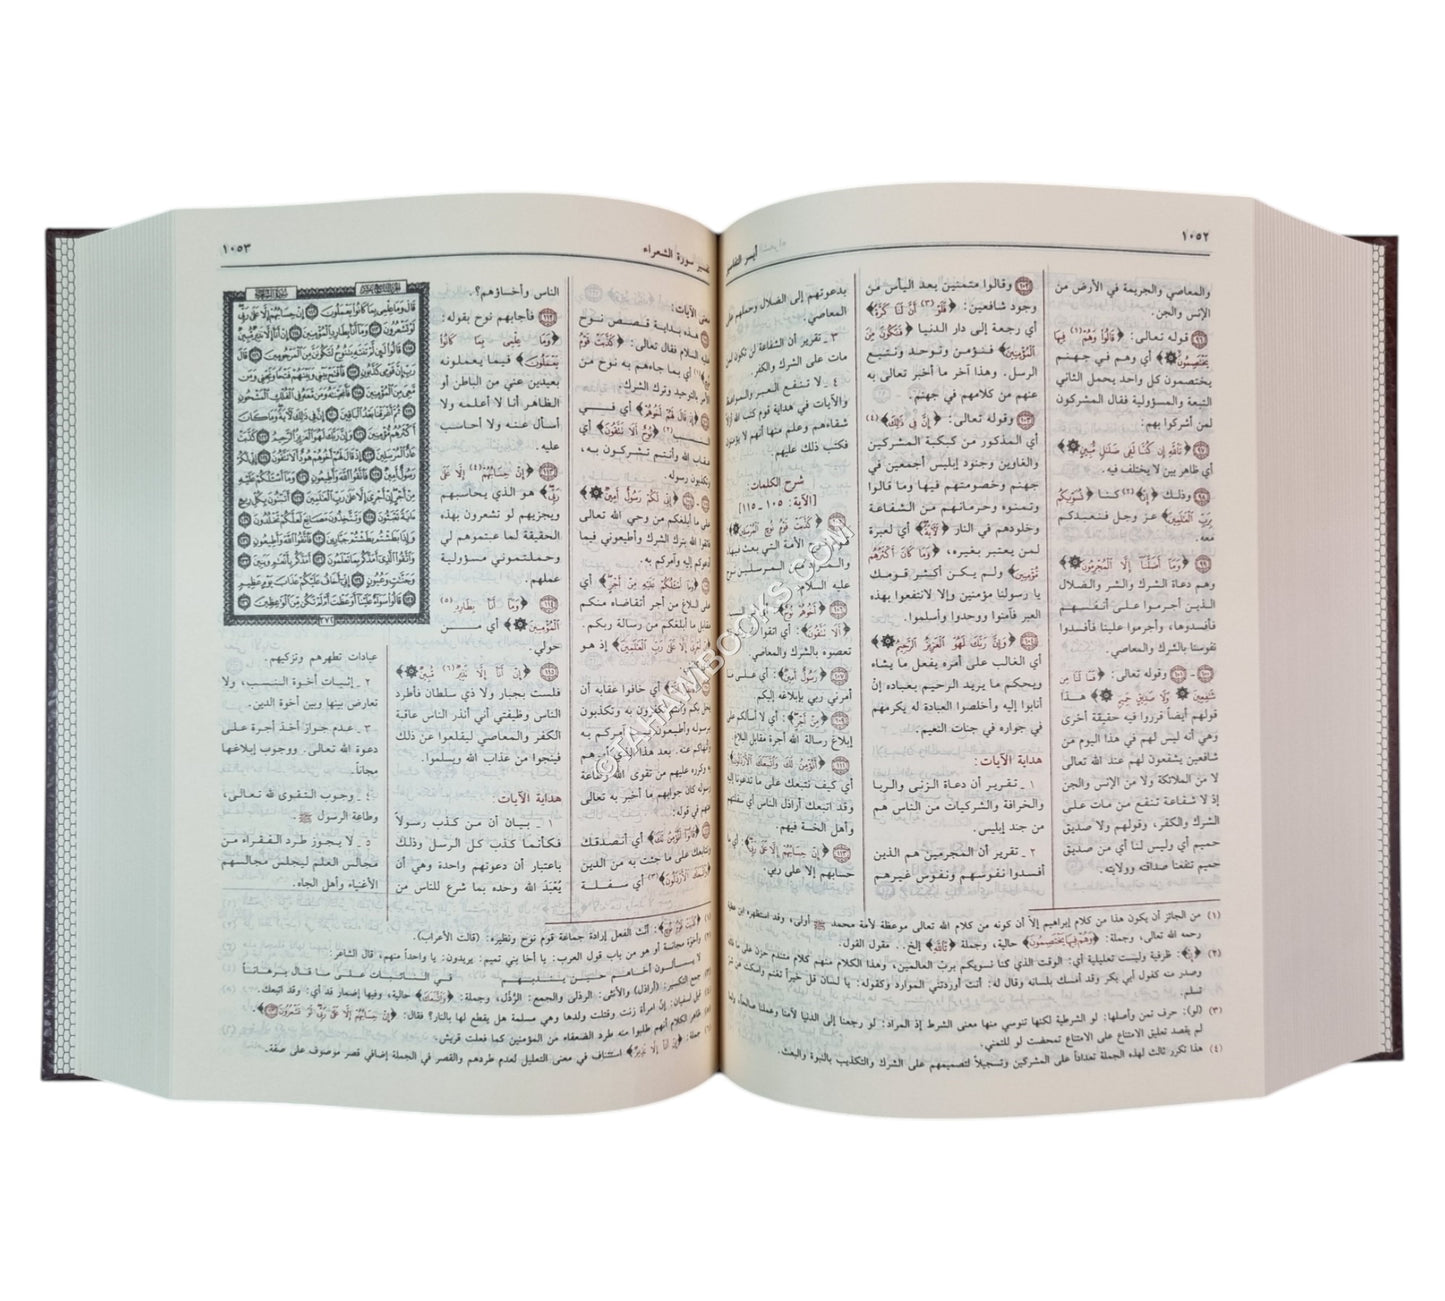 ١٠٥٢
أيسر التفاسير
والمعاصي والجريمة في الأرض من
الإنس والجن.
قوله تعالى: ﴿قَالُوا وَهُمْ فِيهَا
يَخْتَصِمُونَ﴾ أي وهم في جهنم
يختصمون كل واحد يحمل الثاني
التبعة والمسؤولية فقال المشركون
لمن أشركوا بهم:
﴿تَاللَّهِ إِن كُنَّا لَفِي ضَلَالٍ مُّبِينٍ﴾
أي ظاهر بين لا يختلف فيه.
وذلك ﴿إِذْ﴾(٢) كنا ﴿نُسَوِّيكُم
بِرَبِّ الْعَالَمِينَ﴾ عز وجل فنعبدكم
معه.
﴿وَمَا أَضَلَّنَا إِلَّا الْمُجْرِمُونَ﴾
وهم دعاة الشرك والشر والضلال
الذين أجرموا على أنفسهم
فأفسدوها، وأجرموا علينا فأفسدوا
نفوسنا بالشرك والمعاصي.
وقوله تعالى: ﴿فَمَا لَنَا مِن
شَافِعِينَ وَلَا صَدِيقٍ حَمِيمٍ﴾ هذا
قولهم أيضاً قرروا فيه حقيقة أخرى
وهي أنه ليس لهم في هذا اليوم من
شافعين يشفعون لهم عند الله تعالى
لا من الملائكة ولا من الإنس والجن
إذ لا شفاعة تنفع من مات على
الشرك والكفر، وقولهم ولا صديق
حميم أي وليس لنا أي من صديق
حميم تنفعنا صداقته وولايته.
وقالوا متمنين بعد اليأس من
وجود شافعين: ﴿فَلَوْ(٣) أَنَّ لَنَا كَرَّةً﴾
أي رجعة إلى دار الدنيا ﴿فَنَكُونَ مِنَ
الْمُؤْمِنِينَ﴾ فنؤمن ونوحد ونتبع
الرسل. وهذا آخر ما أخبر تعالى به
عنهم من كلامهم في جهنم.
وقوله تعالى: ﴿إِنَّ فِي ذَلِكَ﴾(٤)
أي المذكور من كبكبة المشركين
والغاوين وجنود إبليس أجمعين في
جهنم وخصومتهم فيها وما قالوا
وتمنوه وحرمانهم من الشفاعة
وخلودهم في النار ﴿لَآيَةً﴾ أي لعبرة
لمن يعتبر بغيره، ﴿وَمَا كَانَ أَكْثَرُهُم
مُّؤْمِنِينَ﴾ ولم يكن أكثر قومك
يا رسولنا مؤمنين وإلا لانتفعوا بهذه
العبر فآمنوا ووحدوا وأسلموا.
﴿وَإِنَّ رَبَّكَ لَهُوَ الْعَزِيزُ الرَّحِيمُ﴾
أي الغالب على أمره يفعل ما يشاء
ويحكم ما يريد الرحيم بعباده إنْ
أنابوا إليه وأخلصوا العبادة له يكرمهم
في جواره في جنات النعيم.
هداية الآيات:
١ ـ تقرير أن دعاة الزنى والربا
والخرافة والشركيات من الناس هم
من جند إبليس.
٢ ـ تقرير أن المجرمين هم الذين
أفسدوا نفوسهم ونفوس غيرهم
بدعوتهم إلى الضلال وحملهم على
المعاصي.
٣ ـ تقرير أن الشفاعة لن تكون لمن
مات على الشرك والكفر.
٤ ـ لا تنفع العبر والمواعظ
والآيات في هداية قوم كتب الله أزلاً
شقاءهم وعلم منها أنهم لا يؤمنون
فكتب ذلك عليهم.
شرح الكلمات:
[الآية: ١٠٥ ـ ١١٥]
﴿كَذَّبَتْ قَوْمُ نُوحٍ الْمُرْسَلِينَ﴾:
الأمة التي بعث فيها،
والمراد من المرسلين نوح
عليه السلام.
﴿أَخُوهُمْ نُوحٌ﴾:
﴿أَلَا تَتَّقُونَ﴾: أي اتقوا
تعصوه بالشرك والمعاصي.
﴿رَسُولٌ أَمِينٌ﴾: أي على ما
أمرني ربي بإبلاغه إليكم.
﴿مِنْ أَجْرٍ﴾: أي لا أسألكم على
إبلاغ رسالة الله أجرة مقابل البلاغ.
﴿أَنُؤْمِنُ لَكَ وَاتَّبَعَكَ الْأَرْذَلُونَ﴾:
أي كيف نتبعك على ما تدعونا إليه
وقد اتبعك أراذل الناس أي سفلتهم
وأهل الخسة فيهم.
﴿إِنْ حِسَابُهُمْ إِلَّا عَلَى رَبِّي﴾: أي ما
حسابهم إلا على ربي.
(١) من الجائز أن يكون هذا من كلام إبراهيم إلاّ أن كونه من كلام الله تعالى موعظة لأمة محمد ﷺ أولى، وقد استظهره ابن عطية
رحمه الله تعالى، وجملة: ﴿وَهُمْ فِيهَا يَخْتَصِمُونَ﴾ حالية، وجملة ﴿تَاللَّهِ﴾ إلخ.. مقول القول.
(٢) ﴿إِذْ﴾: ظرفية وليست تعليلية أي: الوقت الذي كنا نسويكم برب العالمين، وهذا الكلام منهم كلام متندم حزن على ما فاته
وصدر منه كقول أبي بكر وقد أمسك بلسانه وقال له: أنت أوردتني الموارد وكقوله: يا لسان قل خيراً تغنم واسكت عن شر
تسلم.
(٣) (لو): حرف تمن وأصلها: لو الشرطية لكنها تنوسي منها معنى الشرط إذ المراد: لو رجعنا إلى الدنيا لآمنا وعملنا صالحاً، ولما
لم يقصد تعليق الامتناع على الامتناع تمحضت لو للتمني.
(٤) هذا تكرر ثالث لهذه الجملة تعداداً على المشركين وتسجيلاً لتصميمهم على الشرك والتكذيب بالنبوة والبعث.
تفسير سورة الشعراء
١٠٥٣
معنى الآيات:
هذه بداية قصص نوح
عليه السلام فقال تعالى: ﴿كَذَّبَتْ قَوْمُ
نُوحٍ﴾(١) أي بما جاءهم به نوح من
الأمر بالتوحيد وترك الشرك.
﴿إِذْ قَالَ لَهُمْ أَخُوهُمْ﴾ أي في
النسب(٢) ﴿نُوحٌ أَلَا تَتَّقُونَ﴾ أي
عقاب الله وأنتم تشركون به،
وتكذبون رسوله.
﴿إِنِّي لَكُمْ رَسُولٌ أَمِينٌ﴾
على ما أبلغكم من وحي الله تعالى
فاتقوا الله بترك الشرك وأطيعوني فيما
أدعوكم إليه وآمركم به.
﴿وَمَا أَسْأَلُكُمْ عَلَيْهِ مِنْ أَجْرٍ﴾ أي
على البلاغ من أجر أتقاضاه منكم
مقابل ما أبلغكم من رسالة ربكم.
﴿إِنْ أَجْرِيَ إِلَّا عَلَى رَبِّ الْعَالَمِينَ﴾ إذ هو
أي خافوا عقابه أن
يحل بكم
برسوله وأطيعون آمركم به
وأنهاكم عنه. بعد هذا
وكرره عليهم من تقوى الله وطاعة
رسوله كان جوابهم ما أخبر به تعالى
عنهم في قوله:
﴿قَالُوا أَنُؤْمِنُ لَكَ﴾ أي أنصدقك
ونتابعك على ما جئت به من الدين
﴿وَاتَّبَعَكَ الْأَرْذَلُونَ﴾(٣) أي سفلة
الناس وأخساؤهم؟.
فأجابهم نوح بقوله:
﴿وَمَا عِلْمِي بِمَا كَانُوا
يَعْمَلُونَ﴾ فيما يعملونه
بعيدين عني من الباطن أو
الظاهر أنا لا أعلمه ولا
أسأل عنه ولا أحاسب
عليه.
﴿إِنْ حِسَابُهُمْ(٤) إِلَّا عَلَى
رَبِّي﴾ هو الذي يحاسبهم
ويجزيهم لو تشعرون بهذه
الحقيقة لما عبتموهم لي
وحملتموني مسؤولية
عملهم.
﴿وَمَا أَنَا بِطَارِدِ(٥)
الْمُؤْمِنِينَ﴾ أي من
حولي.
﴿إِنْ أَنَا إِلَّا نَذِيرٌ(٦) مُّبِينٌ﴾
فلست بجبار ولا ذي سلطان فأطرد
الناس وظيفتي أني أنذر الناس عاقبة
الكفر والمعاصي ليقلعوا عن ذلك
فينجوا من عذاب الله ويسلموا.
هداية الآيات:
١ ـ بيان أن من كذب رسولاً
فكأنما كذب كل الرسل وذلك
باعتبار أن دعوتهم واحدة وهي أن
يُعْبَدَ الله وحده بما شرع للناس من
قَالَ وَمَا عِلْمِي بِمَا كَانُوا يَعْمَلُونَ ١١٢ إِنْ حِسَابُهُمْ إِلَّا عَلَىٰ رَبِّي
لَوْ تَشْعُرُونَ ١١٣ وَمَا أَنَا بِطَارِدِ الْمُؤْمِنِينَ ١١٤ إِنْ أَنَا إِلَّا نَذِيرٌ مُّبِينٌ
١١٥ قَالُوا لَئِن لَّمْ تَنتَهِ يَا نُوحُ لَتَكُونَنَّ مِنَ الْمَرْجُومِينَ ١١٦ قَالَ
رَبِّ إِنَّ قَوْمِي كَذَّبُونِ ١١٧ فَافْتَحْ بَيْنِي وَبَيْنَهُمْ فَتْحًا وَنَجِّنِي وَمَن
مَّعِيَ مِنَ الْمُؤْمِنِينَ ١١٨ فَأَنجَيْنَاهُ وَمَن مَّعَهُ فِي الْفُلْكِ الْمَشْحُونِ
١١٩ ثُمَّ أَغْرَقْنَا بَعْدُ الْبَاقِينَ ١٢٠ إِنَّ فِي ذَٰلِكَ لَآيَةً وَمَا كَانَ
أَكْثَرُهُم مُّؤْمِنِينَ ١٢١ وَإِنَّ رَبَّكَ لَهُوَ الْعَزِيزُ الرَّحِيمُ ١٢٢ كَذَّبَتْ
عَادٌ الْمُرْسَلِينَ ١٢٣ إِذْ قَالَ لَهُمْ أَخُوهُمْ هُودٌ أَلَا تَتَّقُونَ ١٢٤ إِنِّي لَكُمْ
رَسُولٌ أَمِينٌ ١٢٥ فَاتَّقُوا اللَّهَ وَأَطِيعُونِ ١٢٦ وَمَا أَسْأَلُكُمْ عَلَيْهِ
مِنْ أَجْرٍ إِنْ أَجْرِيَ إِلَّا عَلَىٰ رَبِّ الْعَالَمِينَ ١٢٧ أَتَبْنُونَ بِكُلِّ رِيعٍ
آيَةً تَعْبَثُونَ ١٢٨ وَتَتَّخِذُونَ مَصَانِعَ لَعَلَّكُمْ تَخْلُدُونَ ١٢٩
وَإِذَا بَطَشْتُم بَطَشْتُمْ جَبَّارِينَ ١٣٠ فَاتَّقُوا اللَّهَ وَأَطِيعُونِ ١٣١
وَاتَّقُوا الَّذِي أَمَدَّكُم بِمَا تَعْلَمُونَ ١٣٢ أَمَدَّكُم بِأَنْعَامٍ وَبَنِينَ ١٣٣
وَجَنَّاتٍ وَعُيُونٍ ١٣٤ إِنِّي أَخَافُ عَلَيْكُمْ عَذَابَ يَوْمٍ عَظِيمٍ
١٣٥ قَالُوا سَوَاءٌ عَلَيْنَا أَوَعَظْتَ أَمْ لَمْ تَكُن مِّنَ الْوَاعِظِينَ ١٣٦
٣٧٢
عبادات تطهرهم وتزكيهم.
٢ ـ إثبات أخوة النسب، ولا
تعارض بينها وبين أخوة الدين.
٣ ـ عدم جواز أخذ أجرة على
دعوة الله تعالى. ووجوب إبلاغها
مجاناً.
٤ ـ وجوب التقوى لله تعالى،
وطاعة الرسول ﷺ.
٥ ـ لا يجوز طرد الفقراء من
مجالس العلم ليجلس مجالسهم
الأغنياء وأهل الجاه.
(١) ﴿كَذَّبَتْ قَوْمُ﴾: أنّث الفعل إرادة جماعة قوم نوح ونظيره: (قالت الأعراب).
(٢) وأخوة مجانسة أو هو من باب قول العرب: يا أخا بني تميم: يريدون: يا واحداً منهم، قال الشاعر:
لا يسألون أخاهم حين يندبهم في النائبات على ما قال برهاناً
(٣) جمع التكسير: (أراذل) والأنثى: الرذلى والجمع: الرُّذَل، وجملة: ﴿وَاتَّبَعَكَ﴾ حالية، وفيها إضمار قد أي: وقد اتبعك.
(٤) قيل لسفيان: إنّ امرأة زنت وقتلت ولدها وهي مسلمة هل يقطع لها بالنار؟ فقال: ﴿إِنْ حِسَابُهُمْ إِلَّا عَلَى رَبِّي لَوْ تَشْعُرُونَ﴾.
(٥) ظاهر الكلام أنهم طلبوا منه طرد الضعفاء من المؤمنين كما فعلت قريش.
(٦) جملة: ﴿إِنْ أَنَا إِلَّا نَذِيرٌ﴾ استئناف في معنى التعليل لعدم طردهم والقصر في الجملة إضافي قصر موصوف على صفة.
©TAHAWIBOOKS.COM